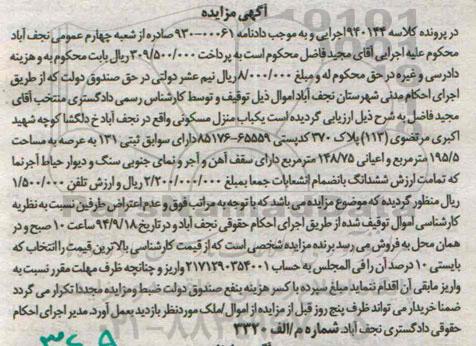 آگهی مزایده
در پرونده کلاسه ۹۴۰۱۴۴ اجرایی و به موجب دادنامه ۰۰۰۶۱-۹۳۰ صادره از شعبه چهارم عمومی نجف آباد
محکوم علیه اجرایی آقای مجید فاضل محکوم است به پرداخت ۳۰۹/۵۰۰/۰۰۰ ریال بابت محکوم به و هزینه
دادرسی و غیره در حق محکوم له و مبلغ ۸/۰۰۰/۰۰۰ ریال نیم عشر دولتی در حق صندوق دولت که از طریق
اجرای احکام مدنی شهرستان نجف آباد اموال ذیل توقیف و توسط کارشناس رسمی دادگستری منتخب آقای
مجید فاضل به شرح ذیل ارزیابی گردیده است یکباب منزل مسکونی واقع در نجف آباد خ دلگشا کوچه شهید
اکبری مرتضوی (۱۱۲) پلاک ۳۷۰ کدپستی ۶۵۵۵۹-۸۵۱۷۶ دارای سوابق ثبتی ۱۳۱ به عرصه به مساحت
۱۹۵/۵ مترمربع و اعیانی ۱۴۸/۷۵ مترمربع دارای سقف آهن و آجر و نمای جنوبی سنگ و دیوار حیاط آجرنما
که تمامت ارزش ششدانگ بانضمام انشعابات جمعا بمبلغ ۲/۲۰۰/۰۰۰/۰۰۰ ریال و ارزش تلفن ۱/۵۰۰/۰۰۰
ریال منظور گردیده که موضوع مزایده می باشد که با توجه به مراتب فوق و عدم اعتراض طرفین نسبت به نظریه
کارشناسی اموال توقیف شده از طریق اجرای احکام حقوقی نجف آباد و در تاریخ ۹۴/۹/۱۸ ساعت ۱۰ صبح و در
همان محل به فروش می رسد برنده مزایده شخصی است که از قیمت کارشناسی بالاترین قیمت را انتخاب که
بایستی ۱۰ درصد آن را فی المجلس به حساب ۲۱۷۱۲۹۰۳۵۴۰۰۱ واریز و چنانچه ظرف مهلت مقرر نسبت به
واریز مابقی آن اقدام ننماید مبلغ سپرده با کسر هزینه بنفع صندوق دولت ضبط و مزایده مجددا تکرار می گردد
ضمنا خریدار می تواند ظرف پنج روز قبل از مزایده از اموال/ملک موردنظر بازدید بعمل آورد. مدیر اجرای احکام
حقوقی دادگستری نجف آباد. شماره م/الف ۳۳۲۰